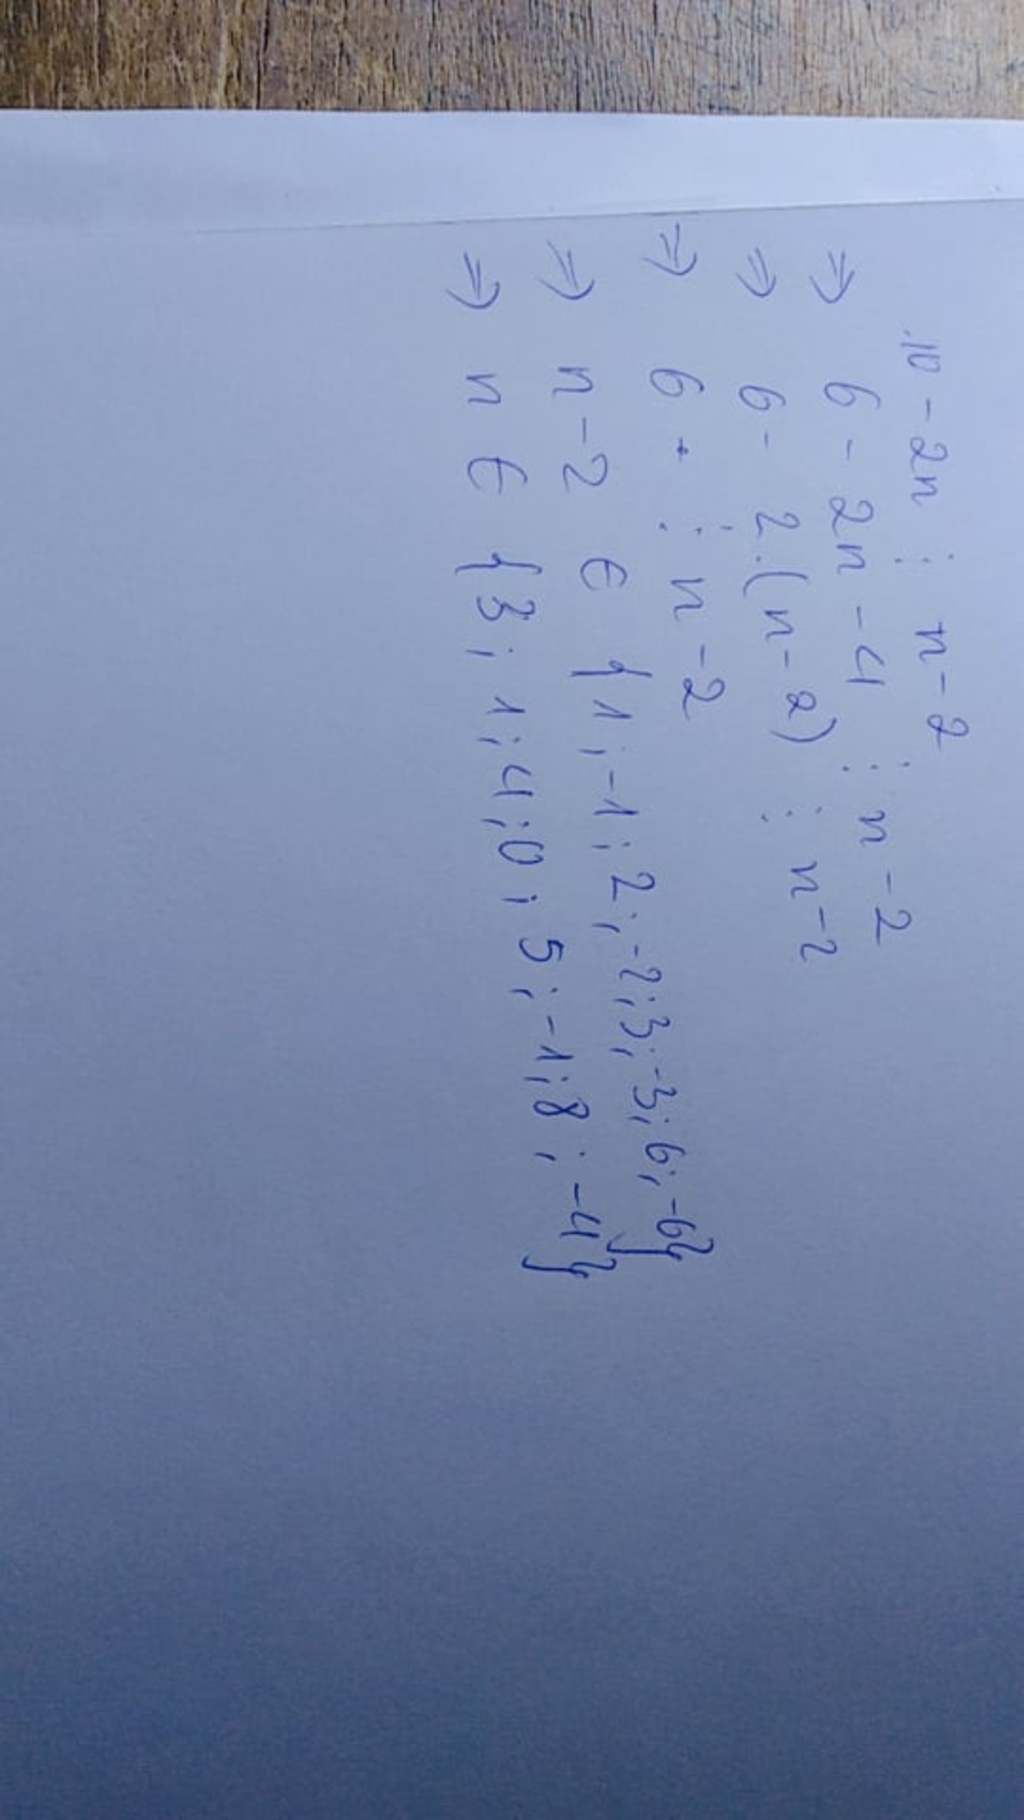 10 - 2n ⋮ n - 2
⇒ 6 - 2n - 4 ⋮ n - 2
⇒ 6 - 2.(n - 2) ⋮ n - 2
⇒ 6 ⋮ n - 2
⇒ n - 2 ∈ {1; -1; 2; -2; 3; -3; 6; -6}
⇒ n ∈ {3; 1; 4; 0; 5; -1; 8; -4}